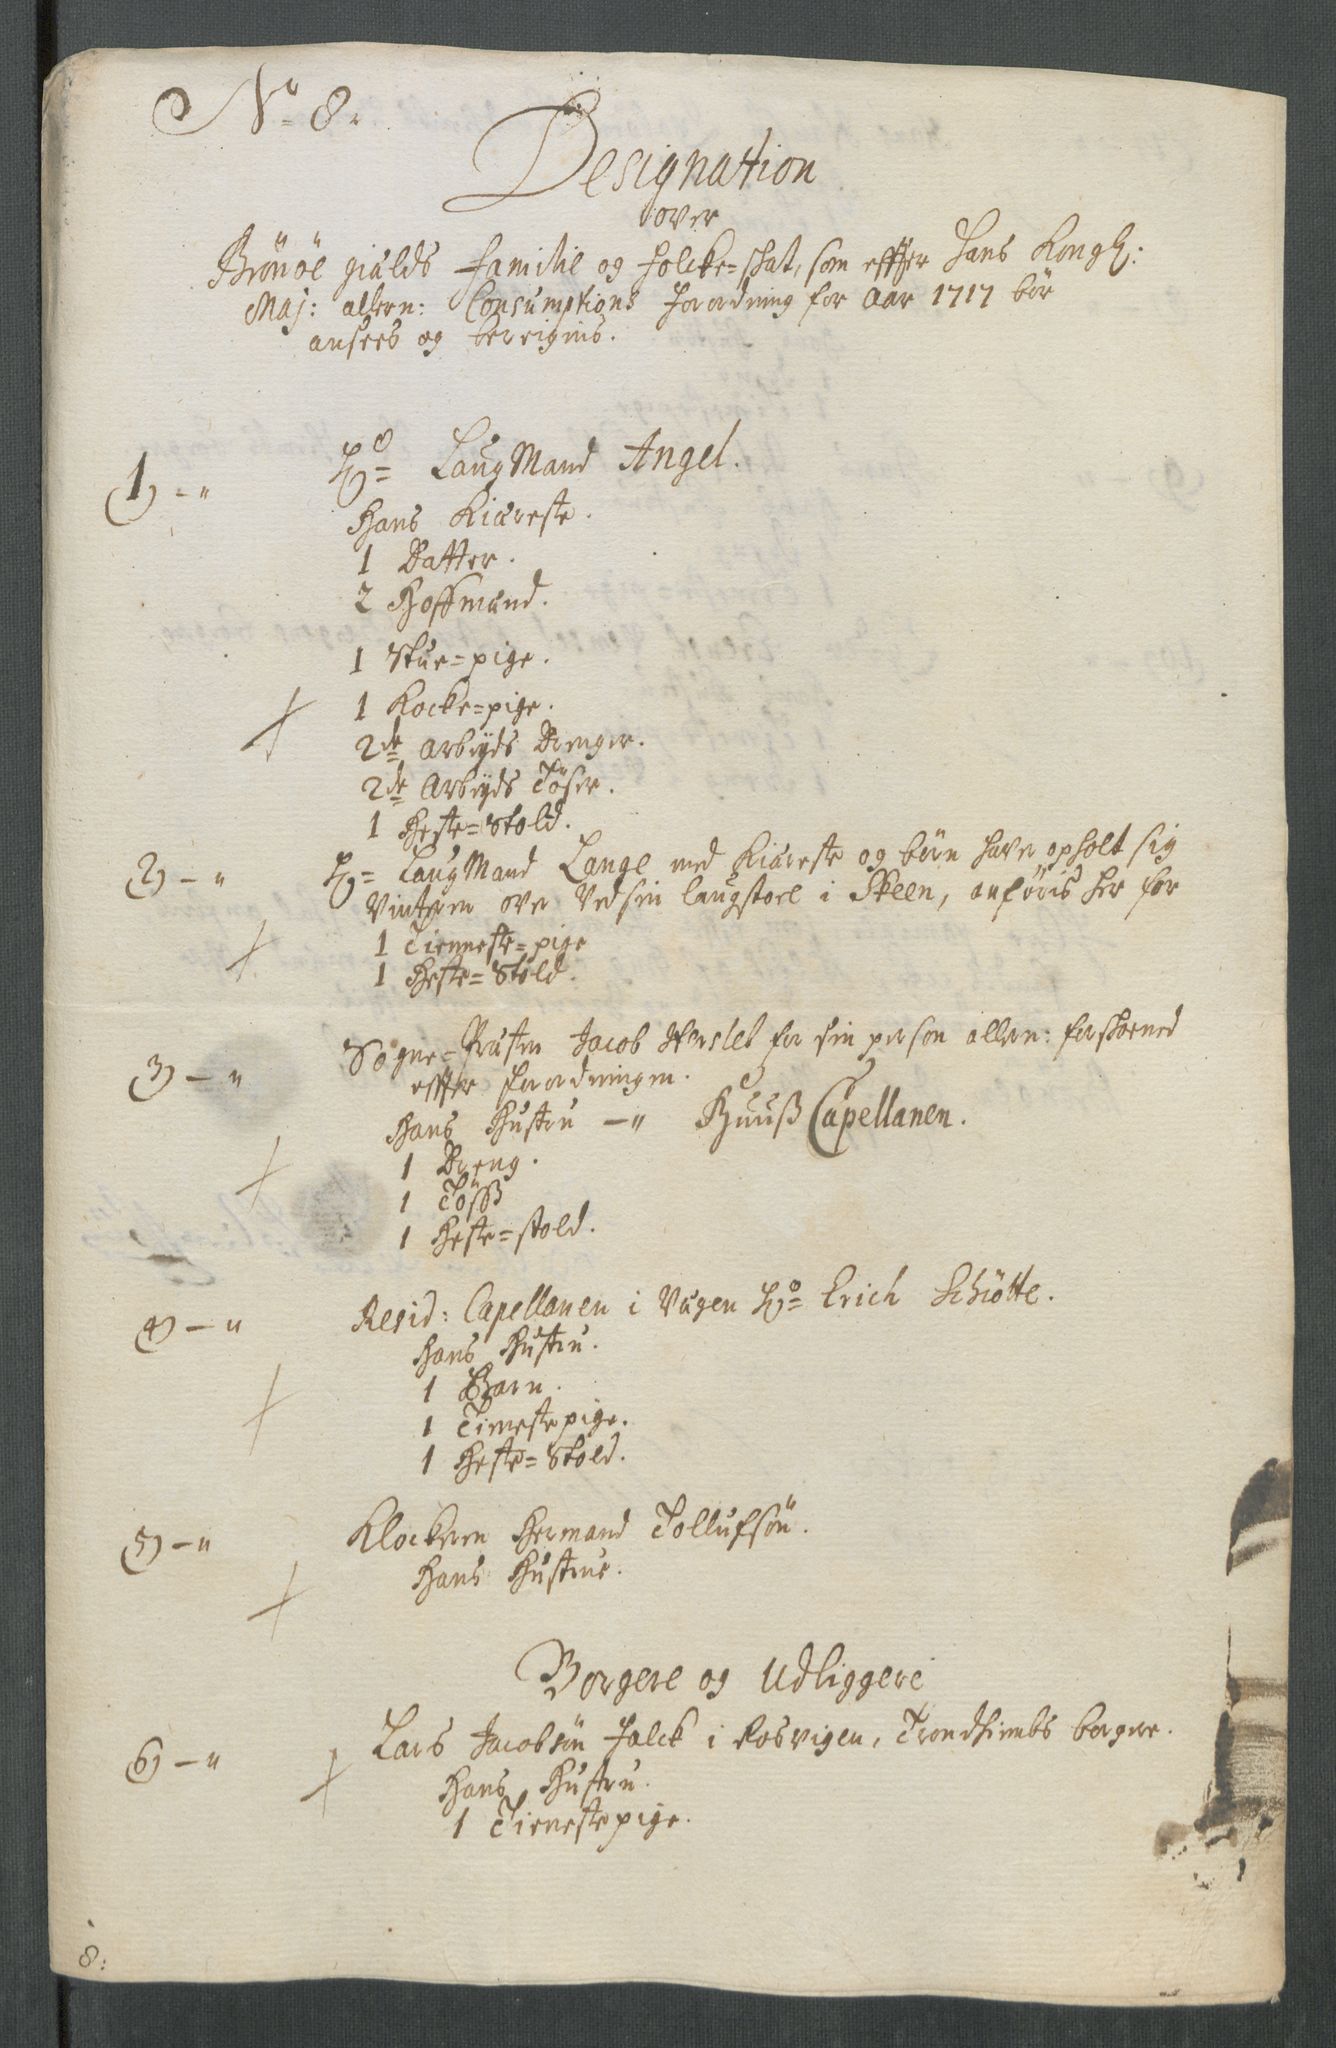 No 8.
Designation
over
Brönöe gields Familie og Folcke=skat, som effter Hans Kongl:
Maj: allern: Consumptions Forordning for Aar 1717 bör
ansees og bereignis.
1) - " Hr= LaugMand Angel.
Hans Kiæreste.
1 Datter.
2 Hoffmænd.
1 Stue=pige.
1 Kocke=pige.
2de Arbeyds Drenge.
2de Arbeyds Töser.
1 Heste=Hold.
2) - " Hr= LaugMand Lange med Kiæreste og börn haver opholt sig
Vinteren over Ved sin laugstoel i Steen, anföris her for
1 Tienneste=pige
1 Heste=Hold.
3) - " Sogne=Præsten Jacob Hersleb for sin person allern: forskoened
effter forordningen.
Hans Hustru - " Huuß Capellanen.
1 Dreng.
1 Töß
1 Heste=hold.
4) - " Resid: Capellanen i Vegen Hr= Erich Schiötte.
Hans Hustru.
1 Barn.
1 Tieneste pige.
1 Heste=Hold.
5) - " Klockeren Hermand Tollufsön.
Hans Hustrue.
Borgere og Udliggere
6) - " Lars Jacobsön Falck i Rosvigen, Trondhiembs borgere.
Hans Hustru.
1 Tieneste pige.
8: